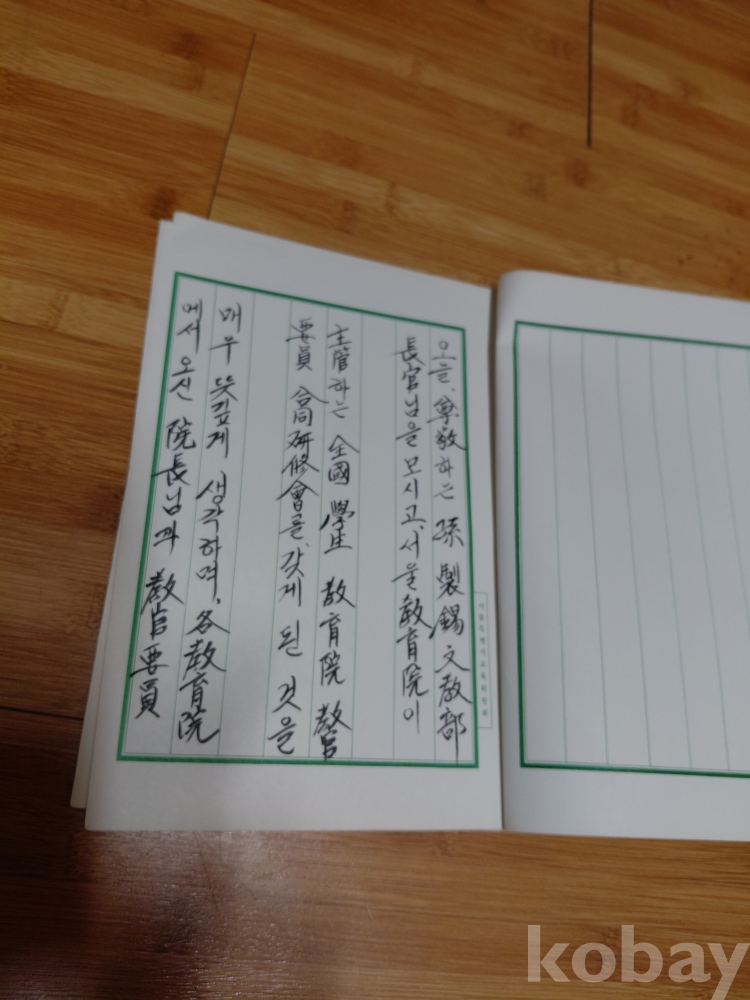 오늘, 尊敬하는 孫製錫 文敎部
長官님을 모시고, 서울敎育院이
主管하는 全國 學生 敎育院 敎官
要員 合同研修會를, 갖게 된 것을
매우 뜻깊게 생각하며, 各敎育院
에서 오신 院長님과 敎官要員
서울특별시교육위원회
kobay